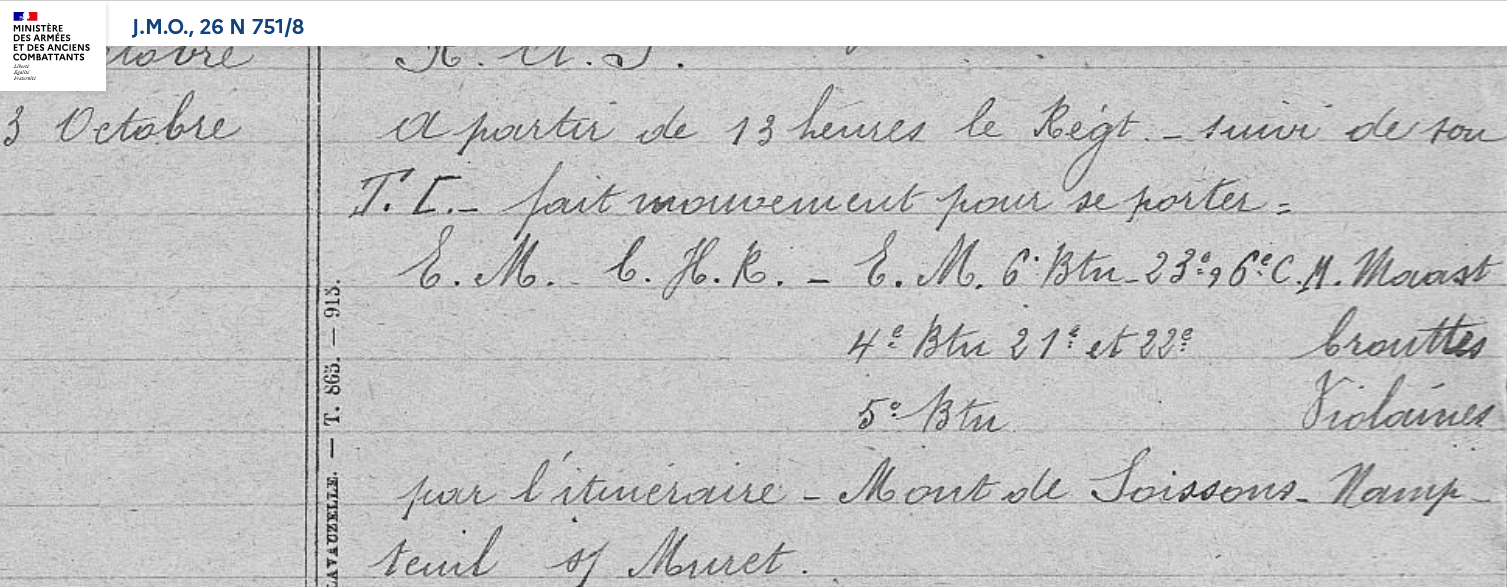 MINISTÈRE
DES ARMÉES
ET DES ANCIENS
COMBATTANTS
Liberté
Égalité
Fraternité
J.M.O., 26 N 751/8
3 Octobre
A partir de 13 heures le Régt. - suivi de son
T.C. - fait mouvement pour se porter =
E.M. C.H.R. - E.M. 6e Btn - 23e, 6e C.M. Maast
4e Btn 21e et 22e Crouttes
5e Btn Violaines
par l'itinéraire - Mont de Soissons - Namp-
teuil s/ Muret.
LAVAUZELLE. — T. 865. — 915.